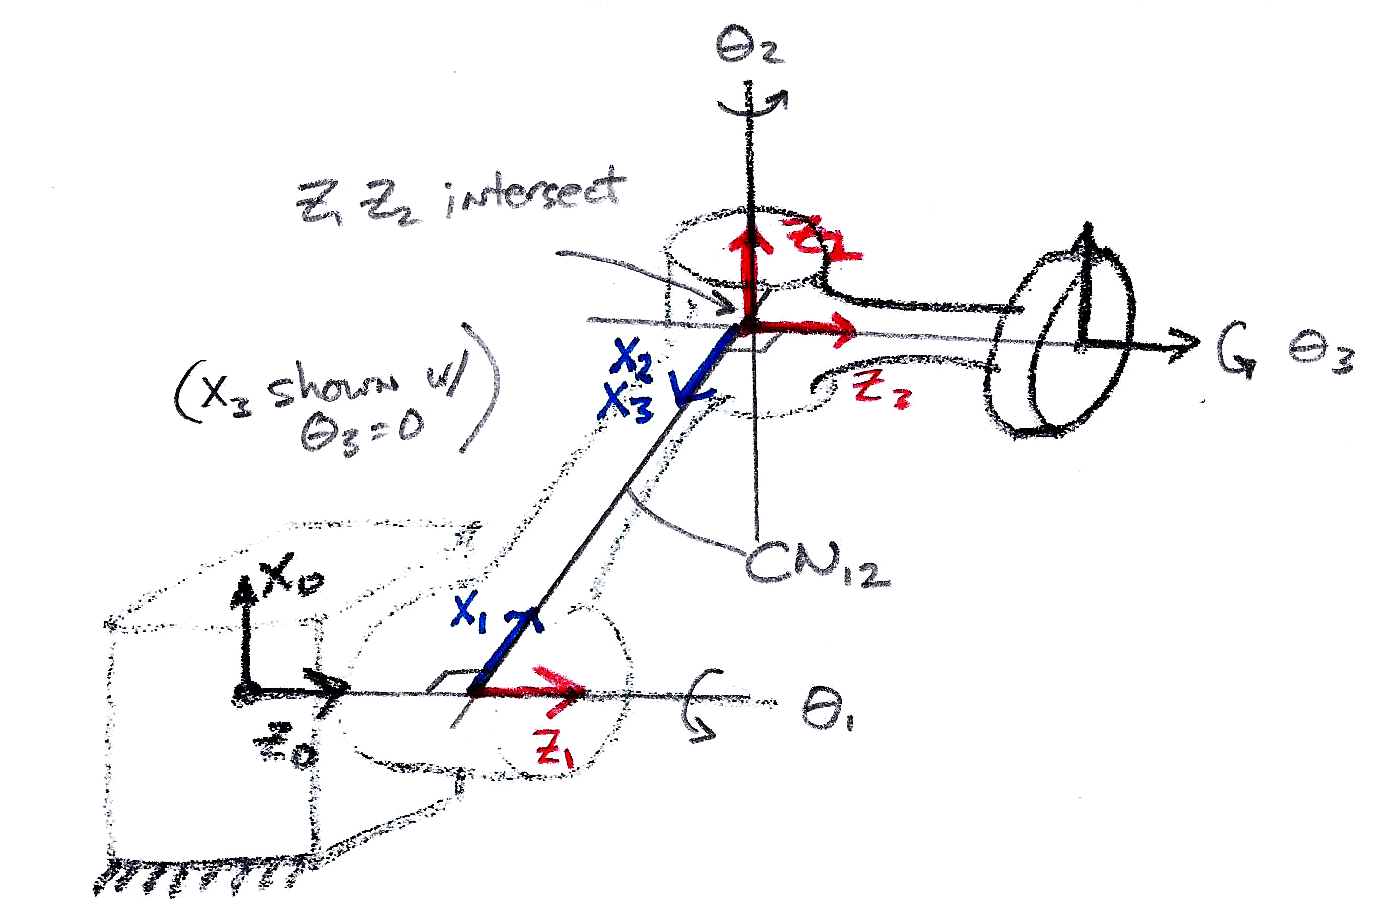 θ2
Z1 Z2 intersect
Z2
X2
X3
(X3 shown w/
θ3=0)
Z3
θ3
CN12
X0
X1
Z0
Z1
θ1